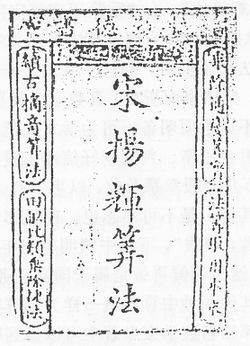 乘除通變算寶
法算取用本末
宋楊輝算法
續古摘奇算法
田畝比類乘除捷法